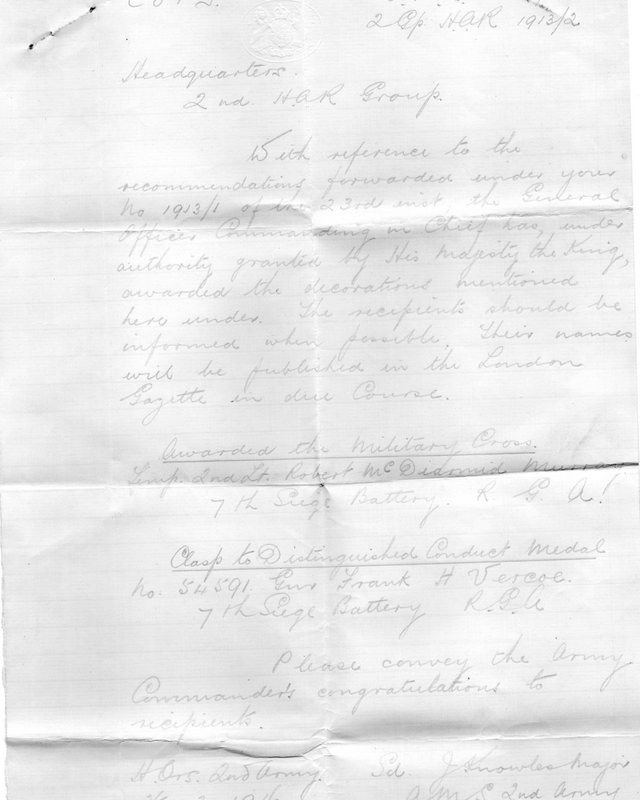 2 Gp HAR 1913/2
Headquarters.
2nd. HAR Group.
With reference to the
recommendations forwarded under your
No 1913/1 of the 23rd inst, the General
Officer Commanding in Chief has, under
authority granted by His Majesty the King,
awarded the decorations mentioned
here under. The recipients should be
informed when possible. Their names
will be published in the London
Gazette in due Course.
Awarded the Military Cross.
Temp. 2nd Lt. Robert McDiarmid Murray
7th Siege Battery. R. G. A.
Clasp to Distinguished Conduct Medal
No. 54591. Gnr Frank H Vercoe.
7th Siege Battery R.G.A
Please convey the Army
Commander's congratulations to
recipients.
H.Qrs. 2nd Army. Sd. J Knowles Major
A.M.S 2nd Army